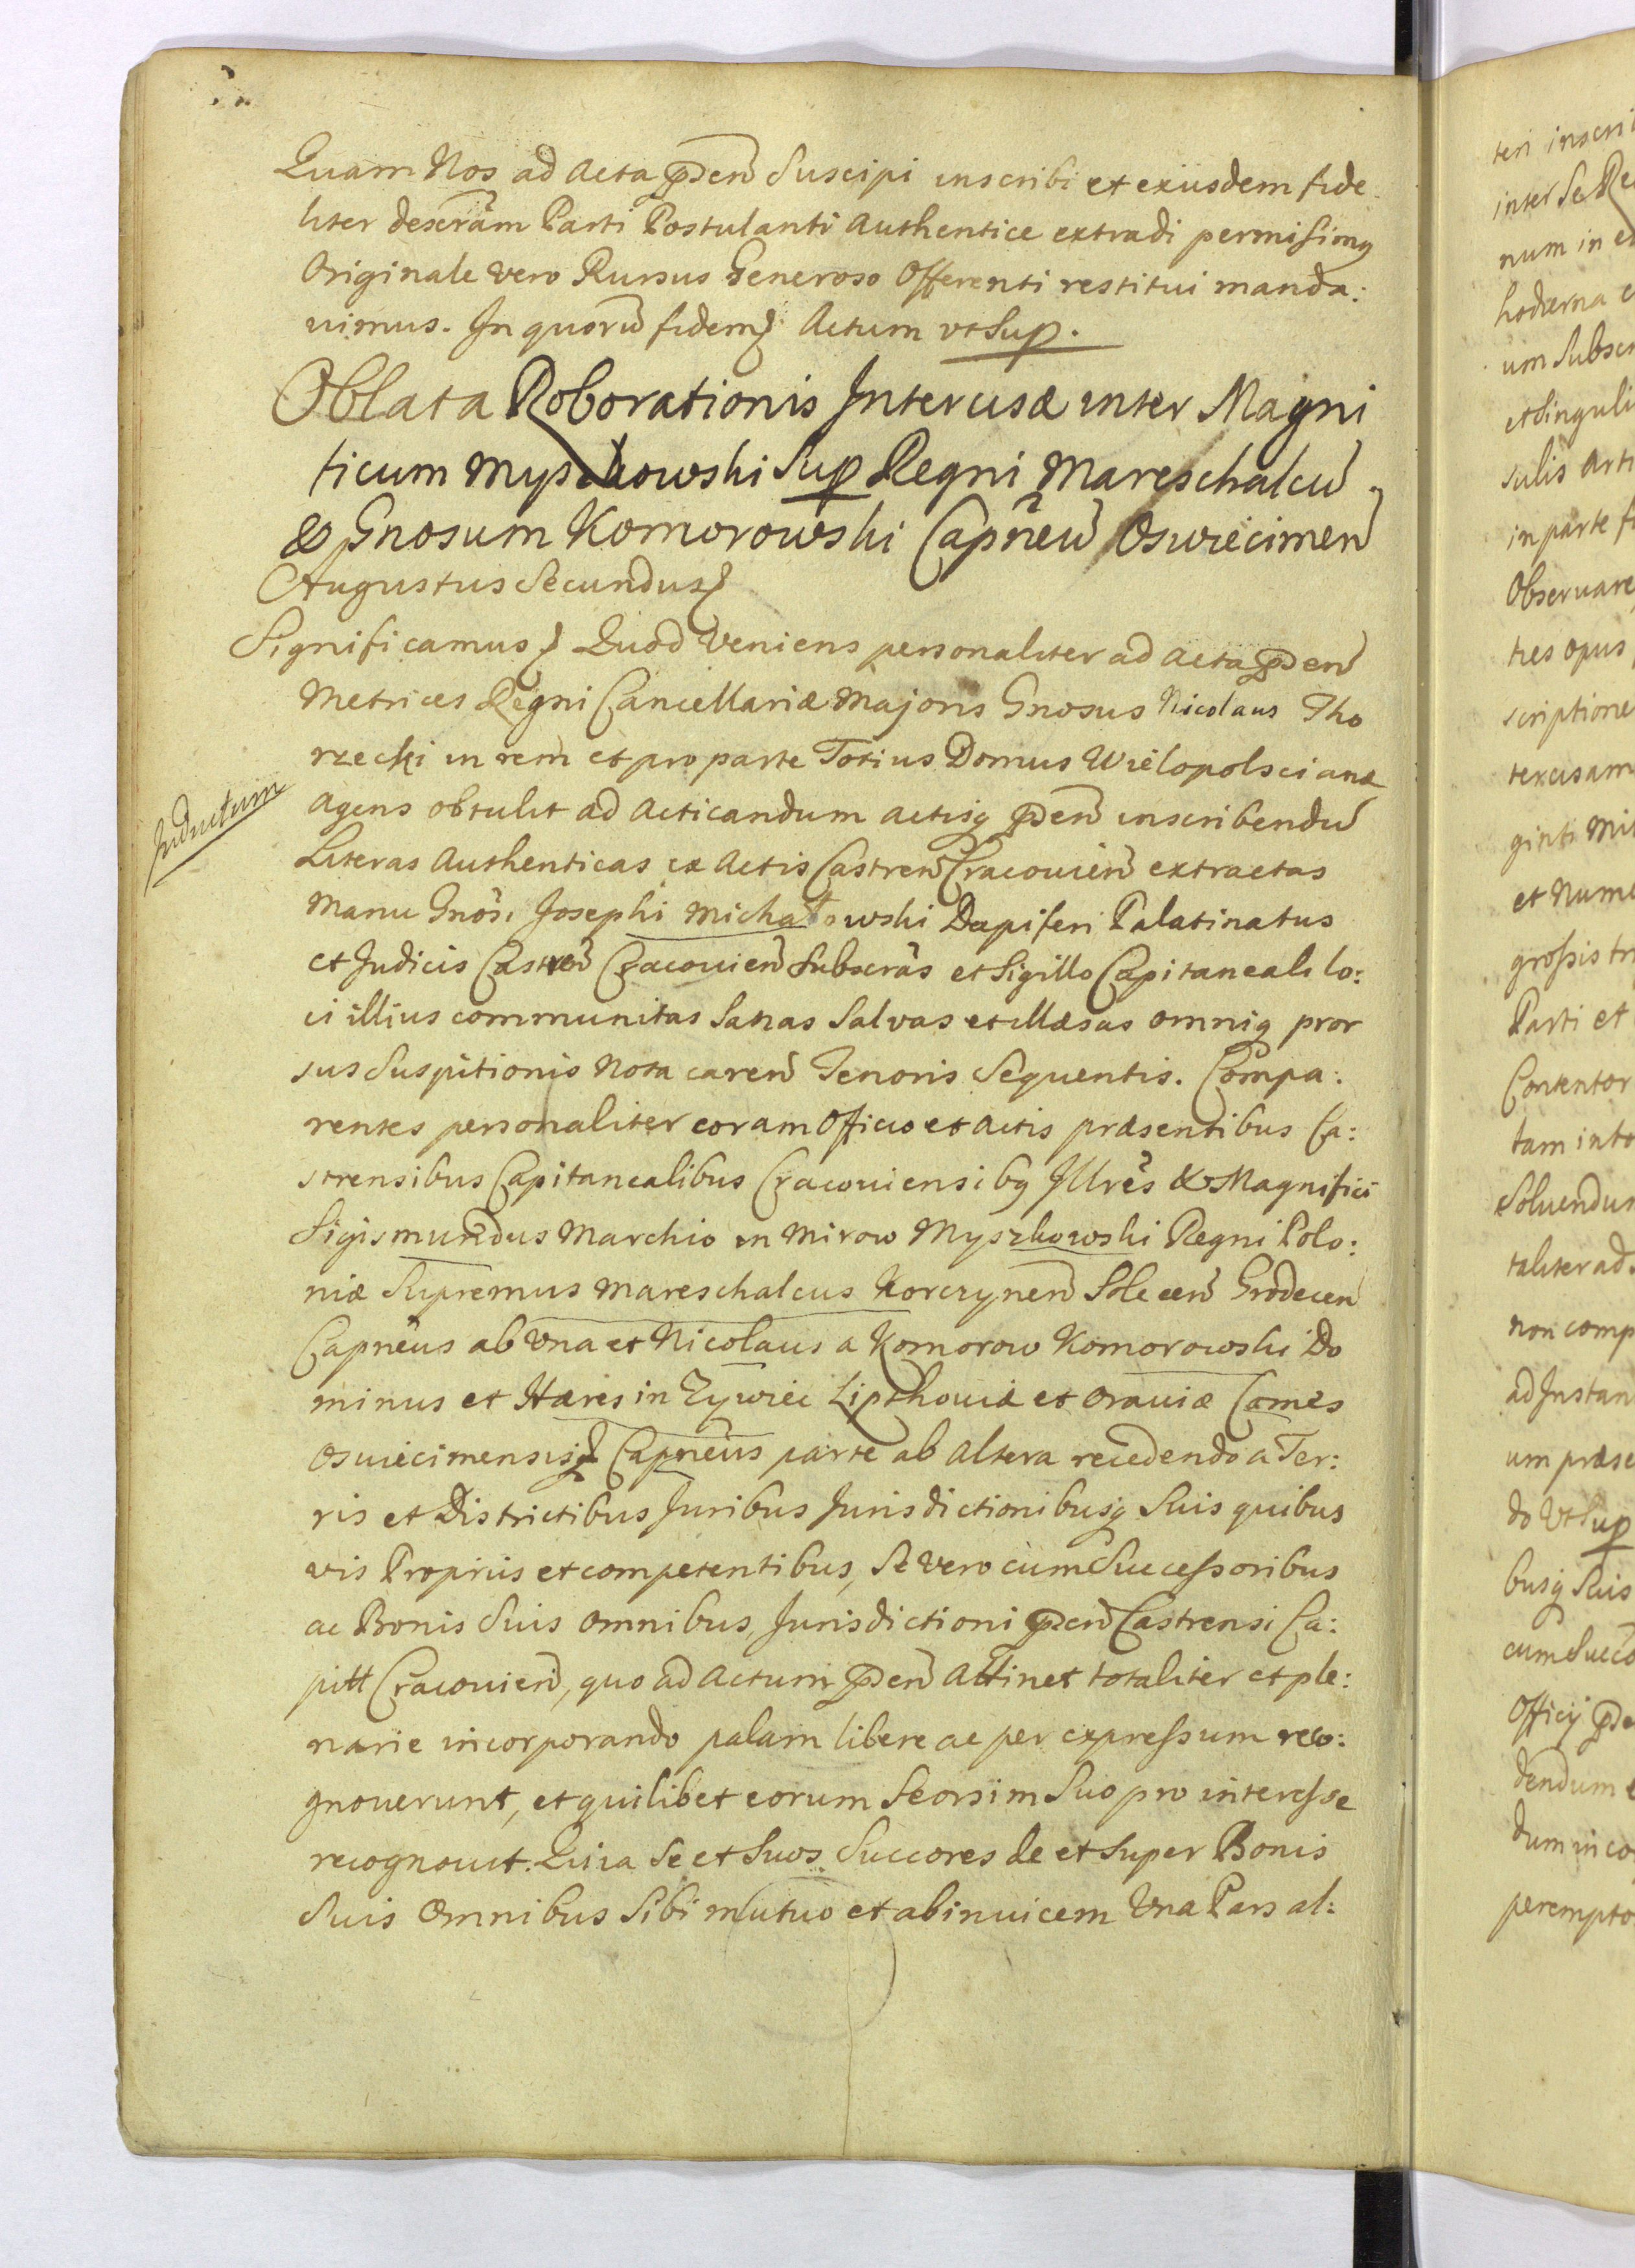 Quam Nos ad Acta p̃den̄ Suscipi inscribi et exiusdem fide
liter descr̃am Parti Postulanti Authentice extradi permisimq
Originale vero Rursus Generoso Offerenti restitui manda:
uimus. In quorū fidem Actum vt Sup.
Oblata Roborationis Intercisæ inter Magni
ticum Myszkowski Sup Regni Mareschalcū
& Gnosum Komorowski Capñeū Oswiecimen̄
Augustus Secundus
Significamus Quod Veniens personaliter ad Acta p̃den̄
Metrices Regni Cancellariæ Majoris Gnosus Nicolaus Tho
rzecki in rem et pro parte Totius Domus Wielopolscianæ
Agens obtulit ad Acticandum Actisq p̃den̄ inscribendū
Literas Authenticas ex Actis Castren̄ Cracouien̄ extractas
Manu Gnosi Josephi Michałowski Dapiferi Palatinatus
et Judicis Castren̄ Cracouien̄ Subscr̃as et Sigillo Capitaneali lo:
ci illius communitas Sanas Salvas et illæsas omniq pror
sus Suspitionis Nota caren̄ Tenoris Sequentis. Compa:
rentes personaliter coram Officio et Actis præsentibus Ca:
strensibus Capitanealibus Cracouiensibq Illrẽs & Magnifici
Sigismundus Marchio in Mirow Myszkowski Regni Polo:
niæ Supremus Mareschalcus Korczynen̄ Solecen̄ Grodecen̄
Capneus ab Vna et Nicolaus a Komorow Komorowski Do
minus et Hæres in Zywiec Lipthouiæ et Orauiæ Comes
Oswiecimensisq Capneus parte ab altera recedendo a Ter:
ris et Districtibus Juribus Jurisdictionibusq Suis quibus
vis Propriis et competentibus, Se vero cum Successoribus
ac Bonis Suis omnibus, Jurisdictioni p̃den̄ Castrensi Ca:
pitt Cracouien̄, quo ad Actum p̃den̄ Attinet totaliter et ple:
narie incorporando palam libere ac per expressum reco:
gnouerunt, et quilibet eorum Seorsim Suo pro interesse
recognouit. Quia Se et Suos Succores de et Super Bonis
Suis Omnibus Sibi mutuo et abinuicem Vna Pars al:
Inductum
teri inscri
inter Se Re
num in e
hodierna
um Subscr
et Singuli
sulis Arti
in parte f
Observare
tres opus
scriptione
tercisam
ginti Mil
et Nume
grossis tri
Parti et
Contentor
tam into
Soluendus
taliter ad
non comp
ad Instan
um præse
do Vt Sup
busq Suis
cum Succo
Officij p̃de
dendum e
dum in co
perempto